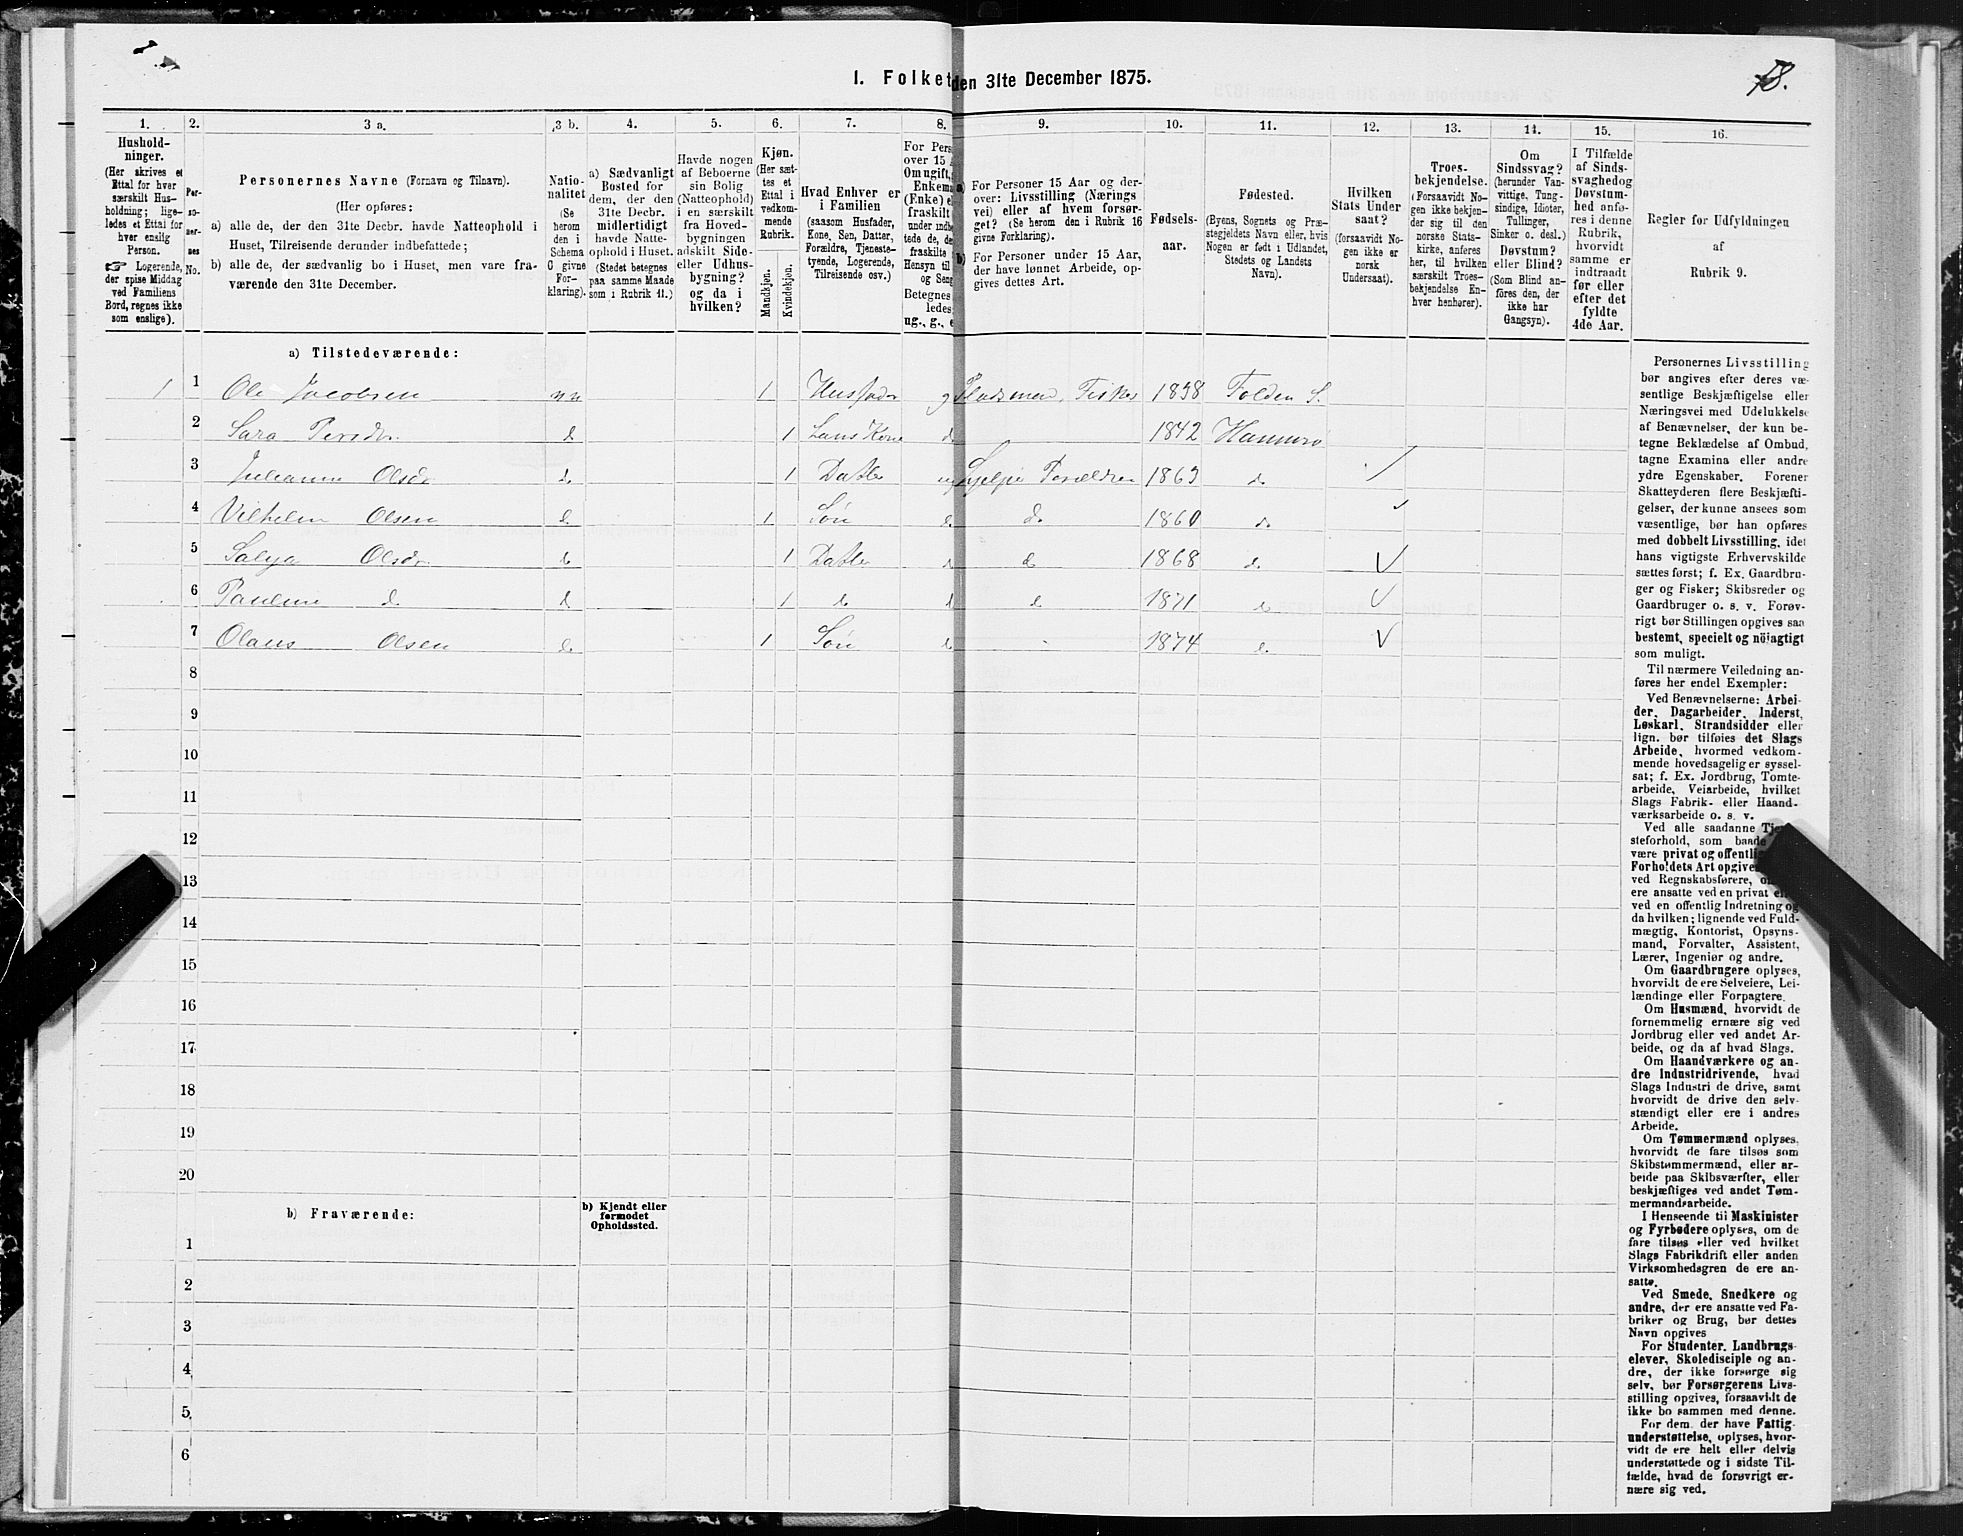 1. Folket den 31te December 1875.
18.
1.
Hushold-
ninger.
(Her skrives et
Ettal for hver
særskilt Hus-
holdning; lige-
ledes et Ettal for
hver enslig
Person.
☞ Logerende,
der spise Middag
ved Familiens
Bord, regnes ikke
som enslige).
2.
Per-
so-
ner-
nes
No.
3 a.
Personernes Navne (Fornavn og Tilnavn).
(Her opføres:
a) alle de, der den 31te Decbr. havde Natteophold i
Huset, Tilreisende derunder indbefattede;
b) alle de, der sædvanlig bo i Huset, men vare fra-
værende den 31te December.
3 b.
Natio-
nalitet
(Se
herom
den i
Schema
G givne
For-
klaring).
4.
a) Sædvanligt
Bosted for
dem, der den
31te Decbr.
midlertidigt
havde Natte-
ophold i Huset.
(Stedet betegnes
paa samme Maade
som i Rubrik 11.)
5.
Havde nogen
af Beboerne
sin Bolig
(Natteophold)
i en særskilt
fra Hoved-
bygningen
adskilt Side-
eller Udhus-
bygning?
og da i
hvilken?
6.
Kjøn.
(Her sæt-
tes et
Ettal i
vedkom-
mende
Rubrik.
Mandkjøn.
Kvindekjøn.
7.
Hvad Enhver er
i Familien
(saasom Husfader,
Kone, Søn, Datter,
Forældre, Tjeneste-
tyende, Logerende,
Tilreisende osv.)
8.
For Pers
over 15 A
Om ugift,
Enkema
(Enke) e
fraskilt
under indbe
tede de, de
fraskilte
Hensyn til
og Seng
Betegnes
ledes:
ug., g., e
9.
a) For Personer 15 Aar og der-
over: Livsstilling (Nærings
vei) eller af hvem forsør-
get? (Se herom den i Rubrik 16
givne Forklaring).
b) For Personer under 15 Aar,
der have lønnet Arbeide, op-
gives dettes Art.
10.
Fødsels-
aar.
11.
Fødested.
(Byens, Sognets og Præ-
stegjeldets Navn eller, hvis
Nogen er født i Udlandet,
Stedets og Landets
Navn).
12.
Hvilken
Stats Under
saat?
(forsaavidt No-
gen ikke er
norsk
Undersaat).
13.
Troes-
bekjendelse.
(Forsaavidt No-
gen ikke bekjen-
der sig til den
norske Stats-
kirke, anføres
her, til hvilken
særskilt Troes-
bekjendelse En-
hver henhører).
14.
Om
Sindssvag?
(herunder Van-
vittige, Tung-
sindige, Idioter,
Tullinger,
Sinker o. desl.)
Døvstum?
eller Blind?
(Som Blind an-
føres den, der
ikke har
Gangsyn).
15.
I Tilfælde
af Sinds-
svaghed og
Døvstum-
hed anfø-
res i denne
Rubrik,
hvorvidt
samme er
indtraadt
før eller
efter det
fyldte
4de Aar.
16.
Regler for Udfyldningen
af
Rubrik 9.
a) Tilstedeværende:
1 1 Ole Jacobsen nn 1 Husfader g Pladsmand, Fisker 1838 Folden S.
2 Sara Persdr. d 1 hans Kone d 1842 Hammerø
3 Julianna Olsdr d 1 Datter ug hjelper Forældrene 1863 do
4 Vilhelm Olsen d. 1 Søn d. do 1860 do
5 Salya Olsdr d. 1 Datter d d 1868 d.
6 Pauline d. d 1 d. d d 1871 d
7 Olaus Olsen d. 1 Søn d - 1874 d.
8
9
10
11
12
13
14
15
16
17
18
19
20
b) Fraværende:
b) Kjendt eller
formodet
Opholdssted.
1
2
3
4
5
6
Personernes Livsstilling
bør angives efter deres væ-
sentlige Beskjæftigelse eller
Næringsvei med Udelukkelse
af Benævnelser, der kun be-
tegne Beklædelse af Ombud,
tagne Examina eller andre
ydre Egenskaber. Forener
Skatteyderen flere Beskjæfti-
gelser, der kunne ansees som
væsentlige, bør han opføres
med dobbelt Livsstilling, idet
hans vigtigste Erhvervskilde
sættes først; f. Ex. Gaardbru-
ger og Fisker; Skibsreder og
Gaardbruger o. s. v. Forøv-
rigt bør Stillingen opgives saa
bestemt, specielt og nöiagtigt
som muligt.
Til nærmere Veiledning an-
føres her endel Exempler:
Ved Benævnelserne: Arbei-
der, Dagarbeider, Inderst,
Løskarl, Strandsidder eller
lign. bør tilføies det Slags
Arbeide, hvormed vedkom-
mende hovedsagelig er syssel-
sat; f. Ex. Jordbrug, Tomte-
arbeide, Veiarbeide, hvilket
Slags Fabrik- eller Haand-
værksarbeide o. s. v.
Ved alle saadanne Tje
steforhold, som baade
være privat og offentlig
Forholdets Art opgive
ved Regnskabsførere,
ere ansatte ved en privat el
ved en offentlig Indretning og
da hvilken; lignende ved Fuld-
mægtig, Kontorist, Opsyns-
mand, Forvalter, Assistent,
Lærer, Ingeniør og andre.
Om Gaardbrugere oplyses,
hvorvidt de ere Selveiere, Lei-
lændinge eller Forpagtere.
Om Husmænd, hvorvidt de
fornemmelig ernære sig ved
Jordbrug eller ved andet Ar-
beide, og da af hvad Slags.
Om Haandværkere og an-
dre Industridrivende, hvad
Slags Industri de drive, samt
hvorvidt de drive den selv-
stændigt eller ere i andres
Arbeide.
Om Tømmermænd oplyses,
hvorvidt de fare tilsøs som
Skibstømmermænd, eller ar-
beide paa Skibsværfter, eller
beskjæftiges ved andet Tøm-
mermandsarbeide.
I Henseende til Maskinister
og Fyrbødere oplyses, om de
fare tilsøs eller ved hvilket
Slags Fabrikdrift eller anden
Virksomhedsgren de ere an-
satte.
Ved Smede, Snedkere og
andre, der ere ansatte ved Fa-
briker og Brug, bør dettes
Navn opgives
For Studenter, Landbrugs-
elever, Skoledisciple og an-
dre, der ikke forsørge sig
selv, bør Forsørgerens Livs-
stilling opgives, forsaavidt de
ikke bo sammen med denne.
For dem, der have Fattig-
understøttelse, oplyses, hvor-
vidt de ere helt eller delvis
understøttede og i sidste Til-
fælde, hvad de forøvrigt er-
nære sig ved.